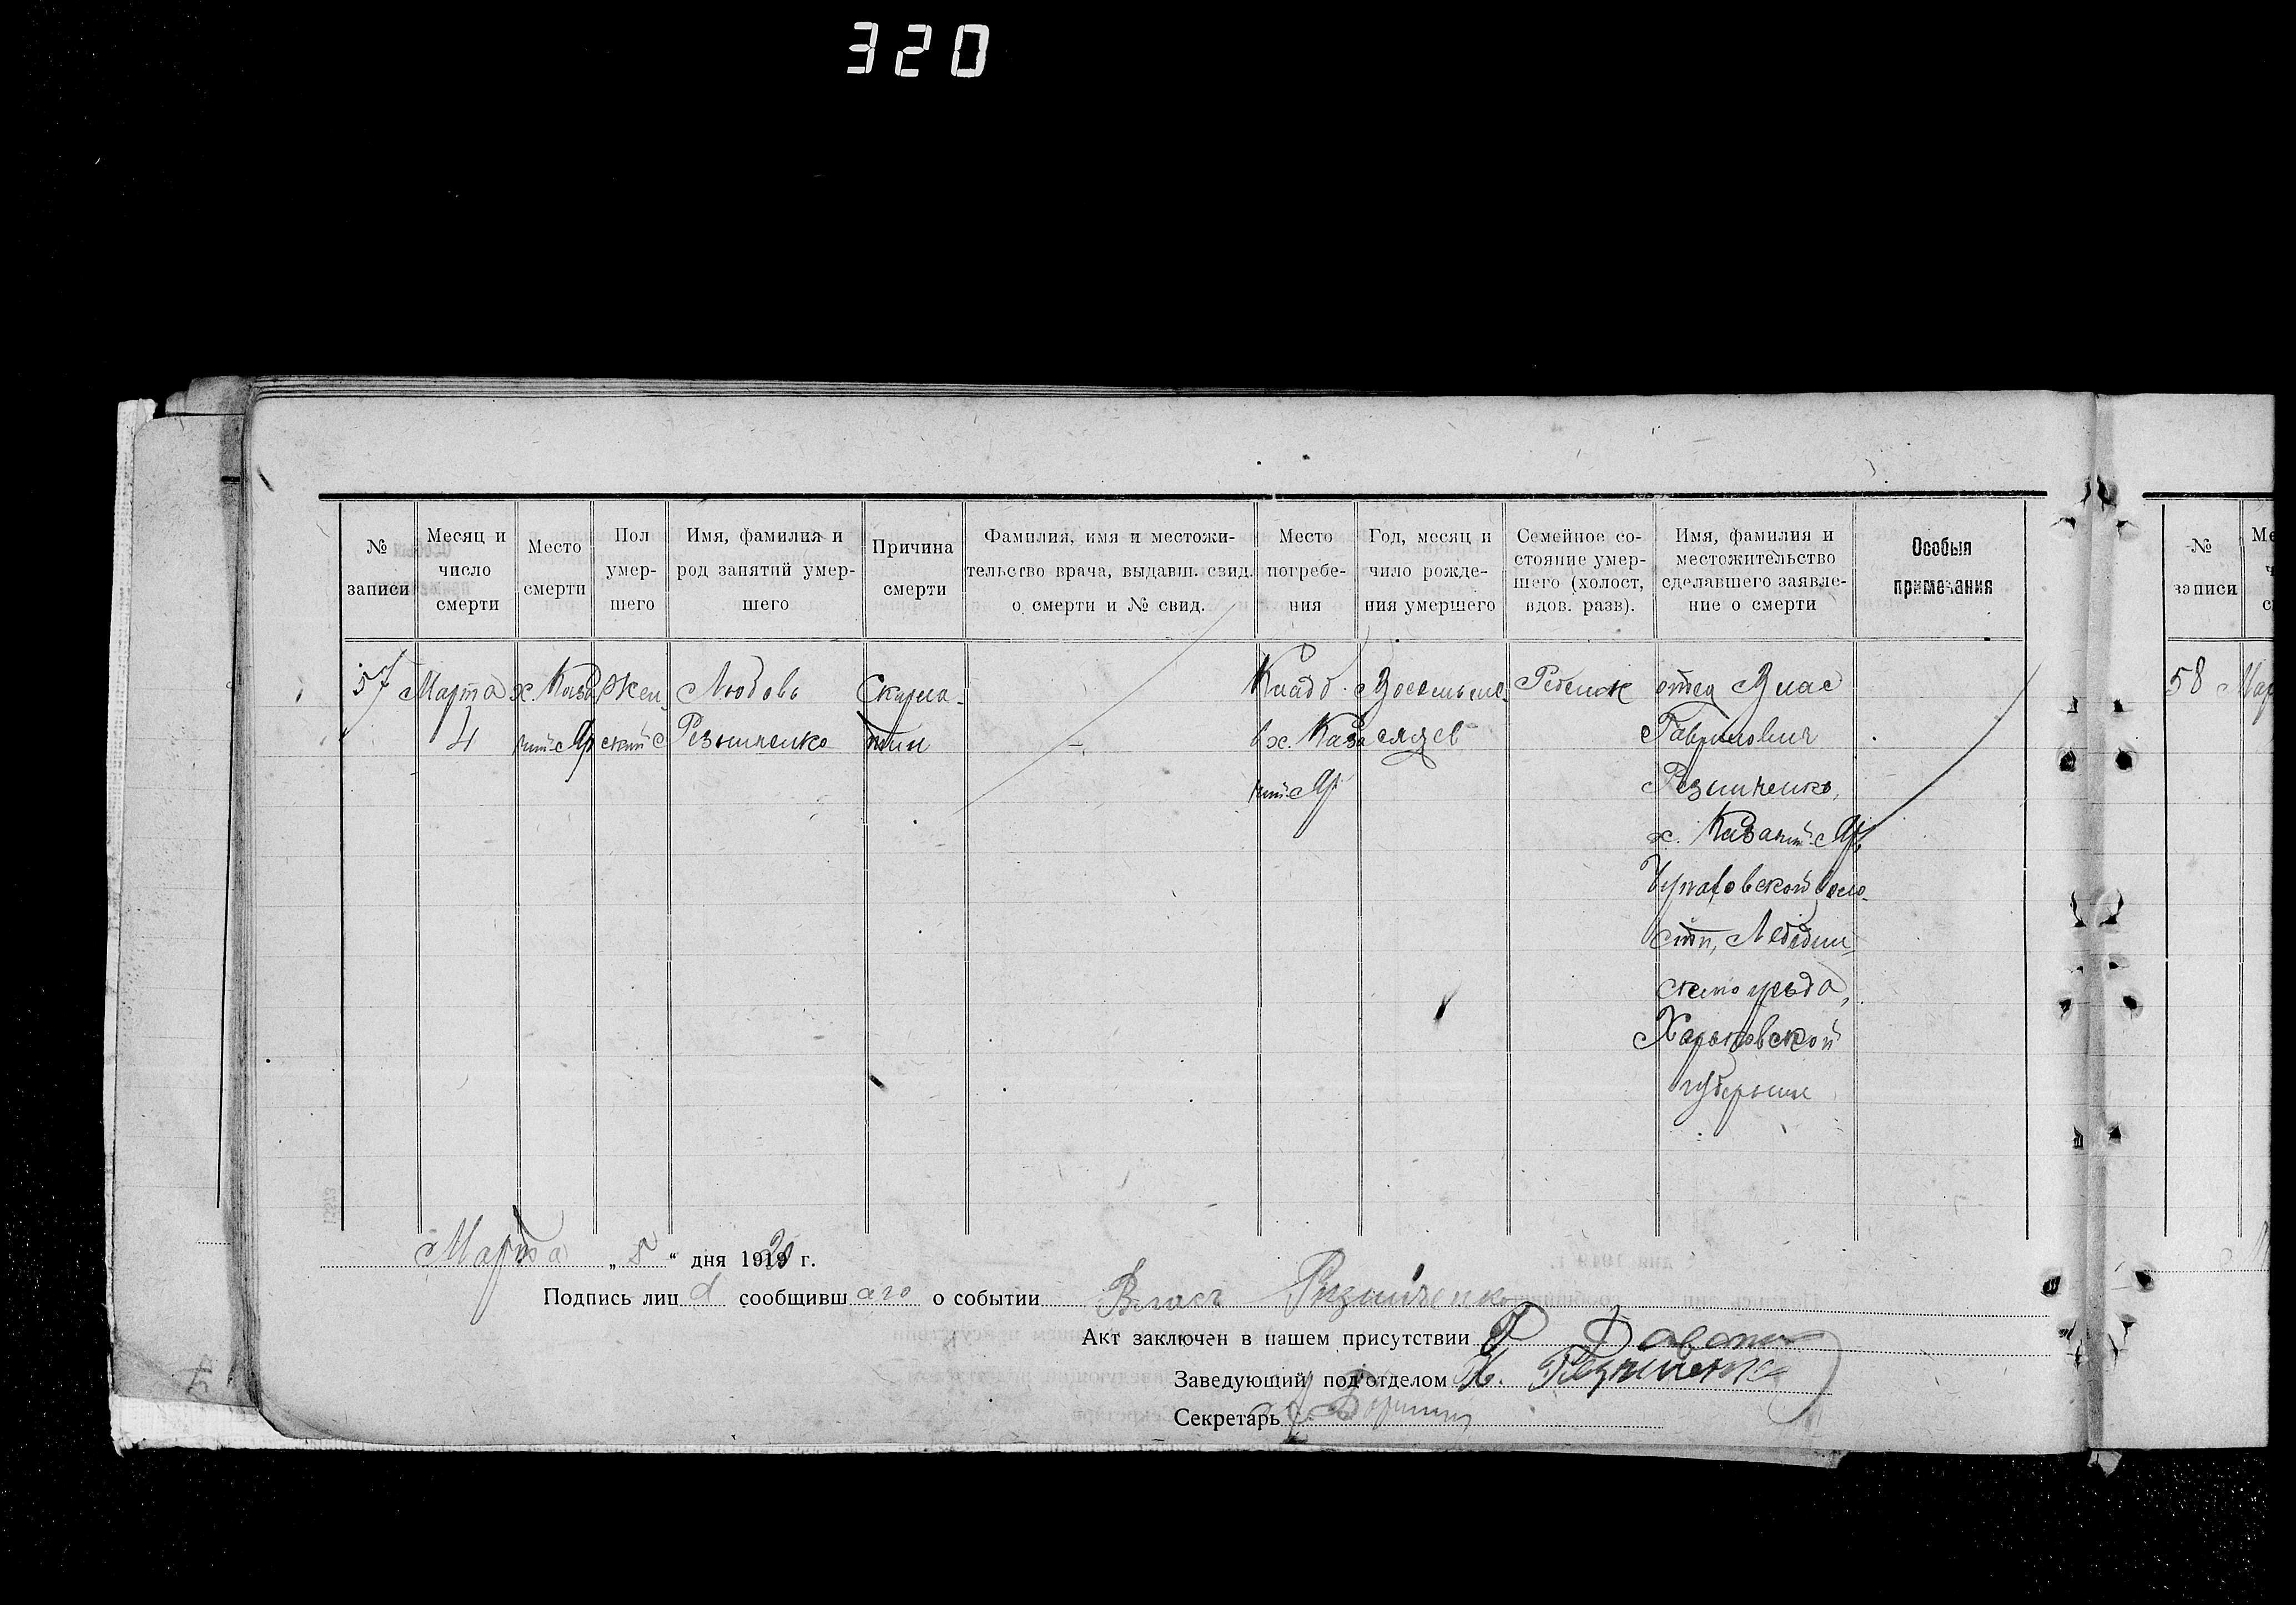 320
№ записи
Месяц и число смерти
Место смерти
Пол умер- шего
Имя, фамилия и род занятий умер- шего
Причина смерти
Фамилия, имя и местожи- тельство врача, выдавш. свид. о смерти и № свид.
Место погребе- ния
Год, месяц и чило рожде- ния умершего
Семейное со- стояние умер- шего (холост, вдов. разв).
Имя, фамилия и местожительство сделавшего заявле- ние о смерти
Особыя примечания
№ записи
57
Марта
4
х. Каза
Яр
Жен.
ский
Любовь
Резниченко
Скарла-
тин
Кладб.
в х. Каза
Яр
Восемь ме-
сяцев
Ребенок
отец Влас
Гаврилович
Резниченко,
х. Казач. Яр,
воло-
сти, Лебедин-
ского уезда,
Харьковской
губернии
58
Марта „ 5 “ дня 1920 г.
Подпись лиц а сообщивш аго о событии Власъ Ризниченко
Акт заключен в нашем присутствии
Заведующий под'отделом Резниченко
Секретарь